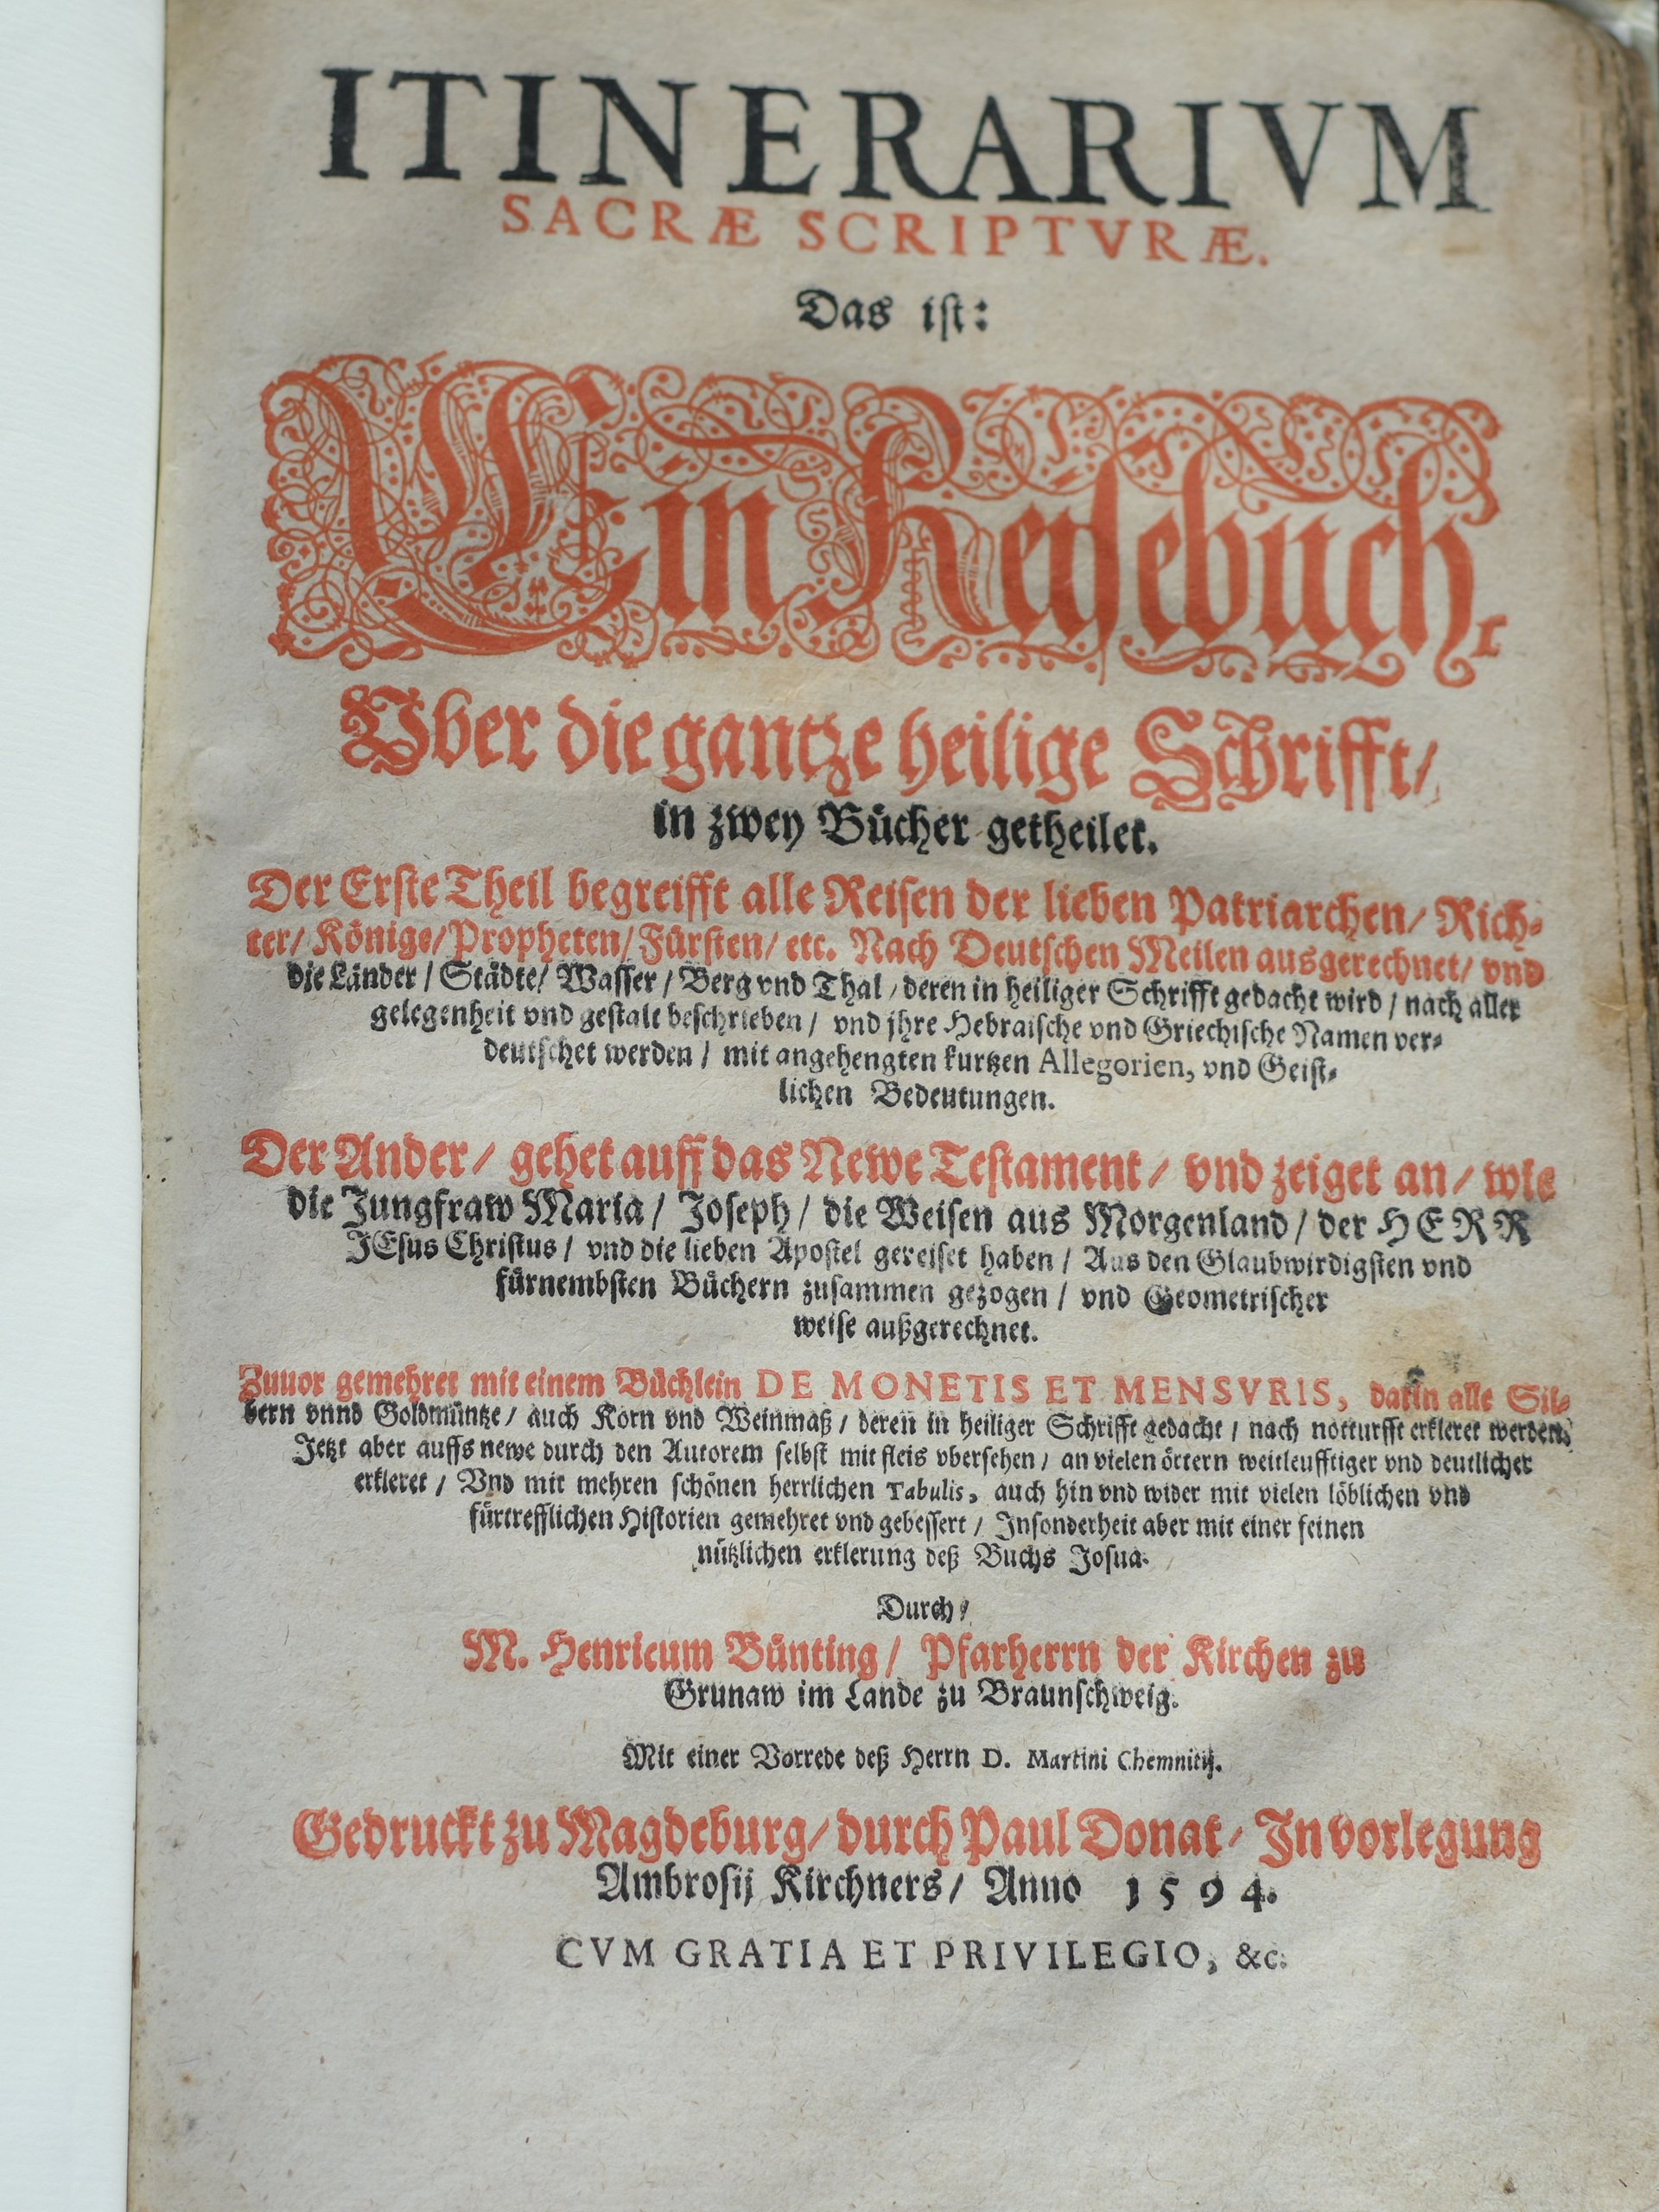 ITINERARIVM
SACRÆ SCRIPTVRÆ.
Das ist:
Ein Reysebuch,
Vber die gantze heilige Schrifft/
in zwey Bücher getheilet.
Der Erste Theil begreifft alle Reisen der lieben Patriarchen/ Rich-
ter/ Könige/ Propheten/ Fürsten/ etc. Nach Deutschen Meilen ausgerechnet/ vnd
die Länder / Städte/ Wasser / Berg vnd Thal / deren in heiliger Schrifft gedacht wird / nach aller
gelegenheit vnd gestalt beschrieben / vnd jhre Hebraische vnd Griechische Namen ver-
deutschet werden / mit angehengten kurtzen Allegorien, vnd Geist-
lichen Bedeutungen.
Der Ander / gehet auff das Newe Testament / vnd zeiget an / wie
die Jungfraw Maria / Joseph / die Weisen aus Morgenland / der HERR
JEsus Christus / vnd die lieben Apostel gereiset haben / Aus den Glaubwirdigsten vnd
fürnembsten Büchern zusammen gezogen / vnd Geometrischer
weise außgerechnet.
Zuuor gemehret mit einem Büchlein DE MONETIS ET MENSVRIS, darin alle Sil-
bern vnnd Goldmüntze / auch Korn vnd Weinmaß / deren in heiliger Schrifft gedacht / nach notturfft erkleret werden,
Jetzt aber auffs newe durch den Autorem selbst mit fleis vbersehen / an vielen örtern weitleufftiger vnd deutlicher
erkleret / Vnd mit mehren schönen herrlichen Tabulis, auch hin vnd wider mit vielen löblichen vnd
fürtrefflichen Historien gemehret vnd gebessert / Insonderheit aber mit einer feinen
nützlichen erklerung deß Buchs Josua.
Durch /
M. Henricum Bünting / Pfarherrn der Kirchen zu
Grunaw im Lande zu Braunschweig.
Mit einer Vorrede deß Herrn D. Martini Chemnitij.
Gedruckt zu Magdeburg / durch Paul Donat / In vorlegung
Ambrosij Kirchners / Anno 1594.
CVM GRATIA ET PRIVILEGIO, &c.